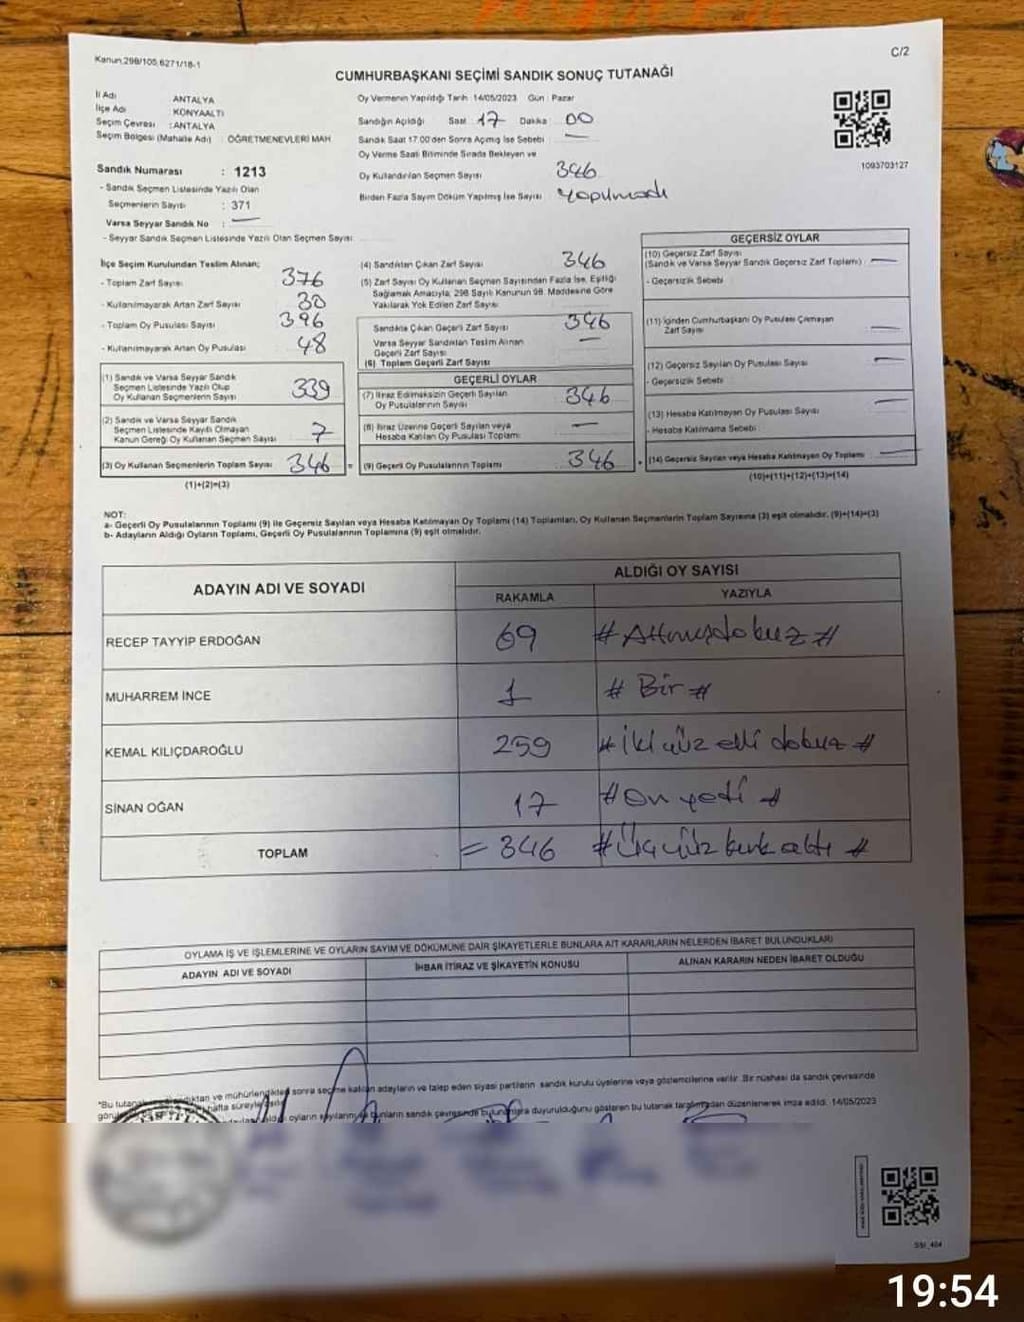 Kanun,298/105,6271/18-1
C/2
CUMHURBAŞKANI SEÇİMİ SANDIK SONUÇ TUTANAĞI
İl Adı ANTALYA
İlçe Adı KONYAALTI
Seçim Çevresi :ANTALYA
Seçim Bölgesi (Mahalle Adı) : ÖĞRETMENEVLERİ MAH
Sandık Numarası : 1213
- Sandık Seçmen Listesinde Yazılı Olan
Seçmenlerin Sayısı : 371
Varsa Seyyar Sandık No :
- Seyyar Sandık Seçmen Listesinde Yazılı Olan Seçmen Sayısı
Oy Vermenin Yapıldığı Tarih :14/05/2023 Gün : Pazar
Sandığın Açıldığı Saat 17 Dakika 00
Sandık Saat 17.00'den Sonra Açımış İse Sebebi
Oy Verme Saati Bitiminde Sırada Bekleyen ve
Oy Kullandırılan Seçmen Sayısı 346
Birden Fazla Sayım Döküm Yapılmış İse Sayısı Yapılmadı
1093703127
İlçe Seçim Kurulundan Teslim Alınan;
- Toplam Zarf Sayısı 376
- Kullanılmayarak Artan Zarf Sayısı 30
- Toplam Oy Pusulası Sayısı 396
- Kullanılmayarak Artan Oy Pusulası 48
(1) Sandık ve Varsa Seyyar Sandık
Seçmen Listesinde Yazılı Olup
Oy Kullanan Seçmenlerin Sayısı 339
(2) Sandık ve Varsa Seyyar Sandık
Seçmen Listesinde Kayıtlı Olmayan
Kanun Gereği Oy Kullanan Seçmen Sayısı 7
(3) Oy Kullanan Seçmenlerin Toplam Sayısı 346 =
(1)+(2)=(3)
(4) Sandıktan Çıkan Zarf Sayısı 346
(5) Zarf Sayısı Oy Kullanan Seçmen Sayısından Fazla İse, Eşitliği
Sağlamak Amacıyla, 298 Sayılı Kanunun 98. Maddesine Göre
Yakılarak Yok Edilen Zarf Sayısı
Sandıkta Çıkan Geçerli Zarf Sayısı 346
Varsa Seyyar Sandıktan Teslim Alınan
Geçerli Zarf Sayısı
(6) Toplam Geçerli Zarf Sayısı
GEÇERLİ OYLAR
(7) İtiraz Edilmeksizin Geçerli Sayılan
Oy Pusulalarının Sayısı 346
(8) İtiraz Üzerine Geçerli Sayılan veya
Hesaba Katılan Oy Pusulası Toplamı
(9) Geçerli Oy Pusulalarının Toplamı 346
GEÇERSİZ OYLAR
(10) Geçersiz Zarf Sayısı
(Sandık ve Varsa Seyyar Sandık Geçersiz Zarf Toplamı)
- Geçersizlik Sebebi
(11) İçinden Cumhurbaşkanı Oy Pusulası Çıkmayan
Zarf Sayısı
(12) Geçersiz Sayılan Oy Pusulası Sayısı
- Geçersizlik Sebebi
(13) Hesaba Katılmayan Oy Pusulası Sayısı
- Hesaba Katılmama Sebebi
(14) Geçersiz Sayılan veya Hesaba Katılmayan Oy Toplamı
(10)+(11)+(12)+(13)=(14)
NOT:
a- Geçerli Oy Pusulalarının Toplamı (9) ile Geçersiz Sayılan veya Hesaba Katılmayan Oy Toplamı (14) Toplamları, Oy Kullanan Seçmenlerin Toplam Sayısına (3) eşit olmalıdır. (9)+(14)=(3)
b- Adayların Aldığı Oyların Toplamı, Geçerli Oy Pusulalarının Toplamına (9) eşit olmalıdır.
ADAYIN ADI VE SOYADI
ALDIĞI OY SAYISI
RAKAMLA YAZIYLA
RECEP TAYYİP ERDOĞAN 69 # Altmışdokuz #
MUHARREM İNCE 1 # Bir #
KEMAL KILIÇDAROĞLU 259 # İki yüz elli dokuz #
SİNAN OĞAN 17 # On yedi #
TOPLAM = 346 # Üç yüz kırk altı #
OYLAMA İŞ VE İŞLEMLERİNE VE OYLARIN SAYIM VE DÖKÜMÜNE DAİR ŞİKAYETLERLE BUNLARA AİT KARARLARIN NELERDEN İBARET BULUNDUKLARI
ADAYIN ADI VE SOYADI İHBAR İTİRAZ VE ŞİKAYETİN KONUSU ALINAN KARARIN NEDEN İBARET OLDUĞU
*Bu tutanak ve mühürlendikten sonra seçime katılan adayların ve talep eden siyasi partilerin sandık kurulu üyelerine veya gözlemcilerine verilir. Bir nüshası da sandık çevresinde
hafta süreyle
oyların sayılarını bunların sandık çevresinde duyurulduğunu gösteren bu tutanak tarafımızdan düzenlenerek imza edildi. 14/05/2023
19:54